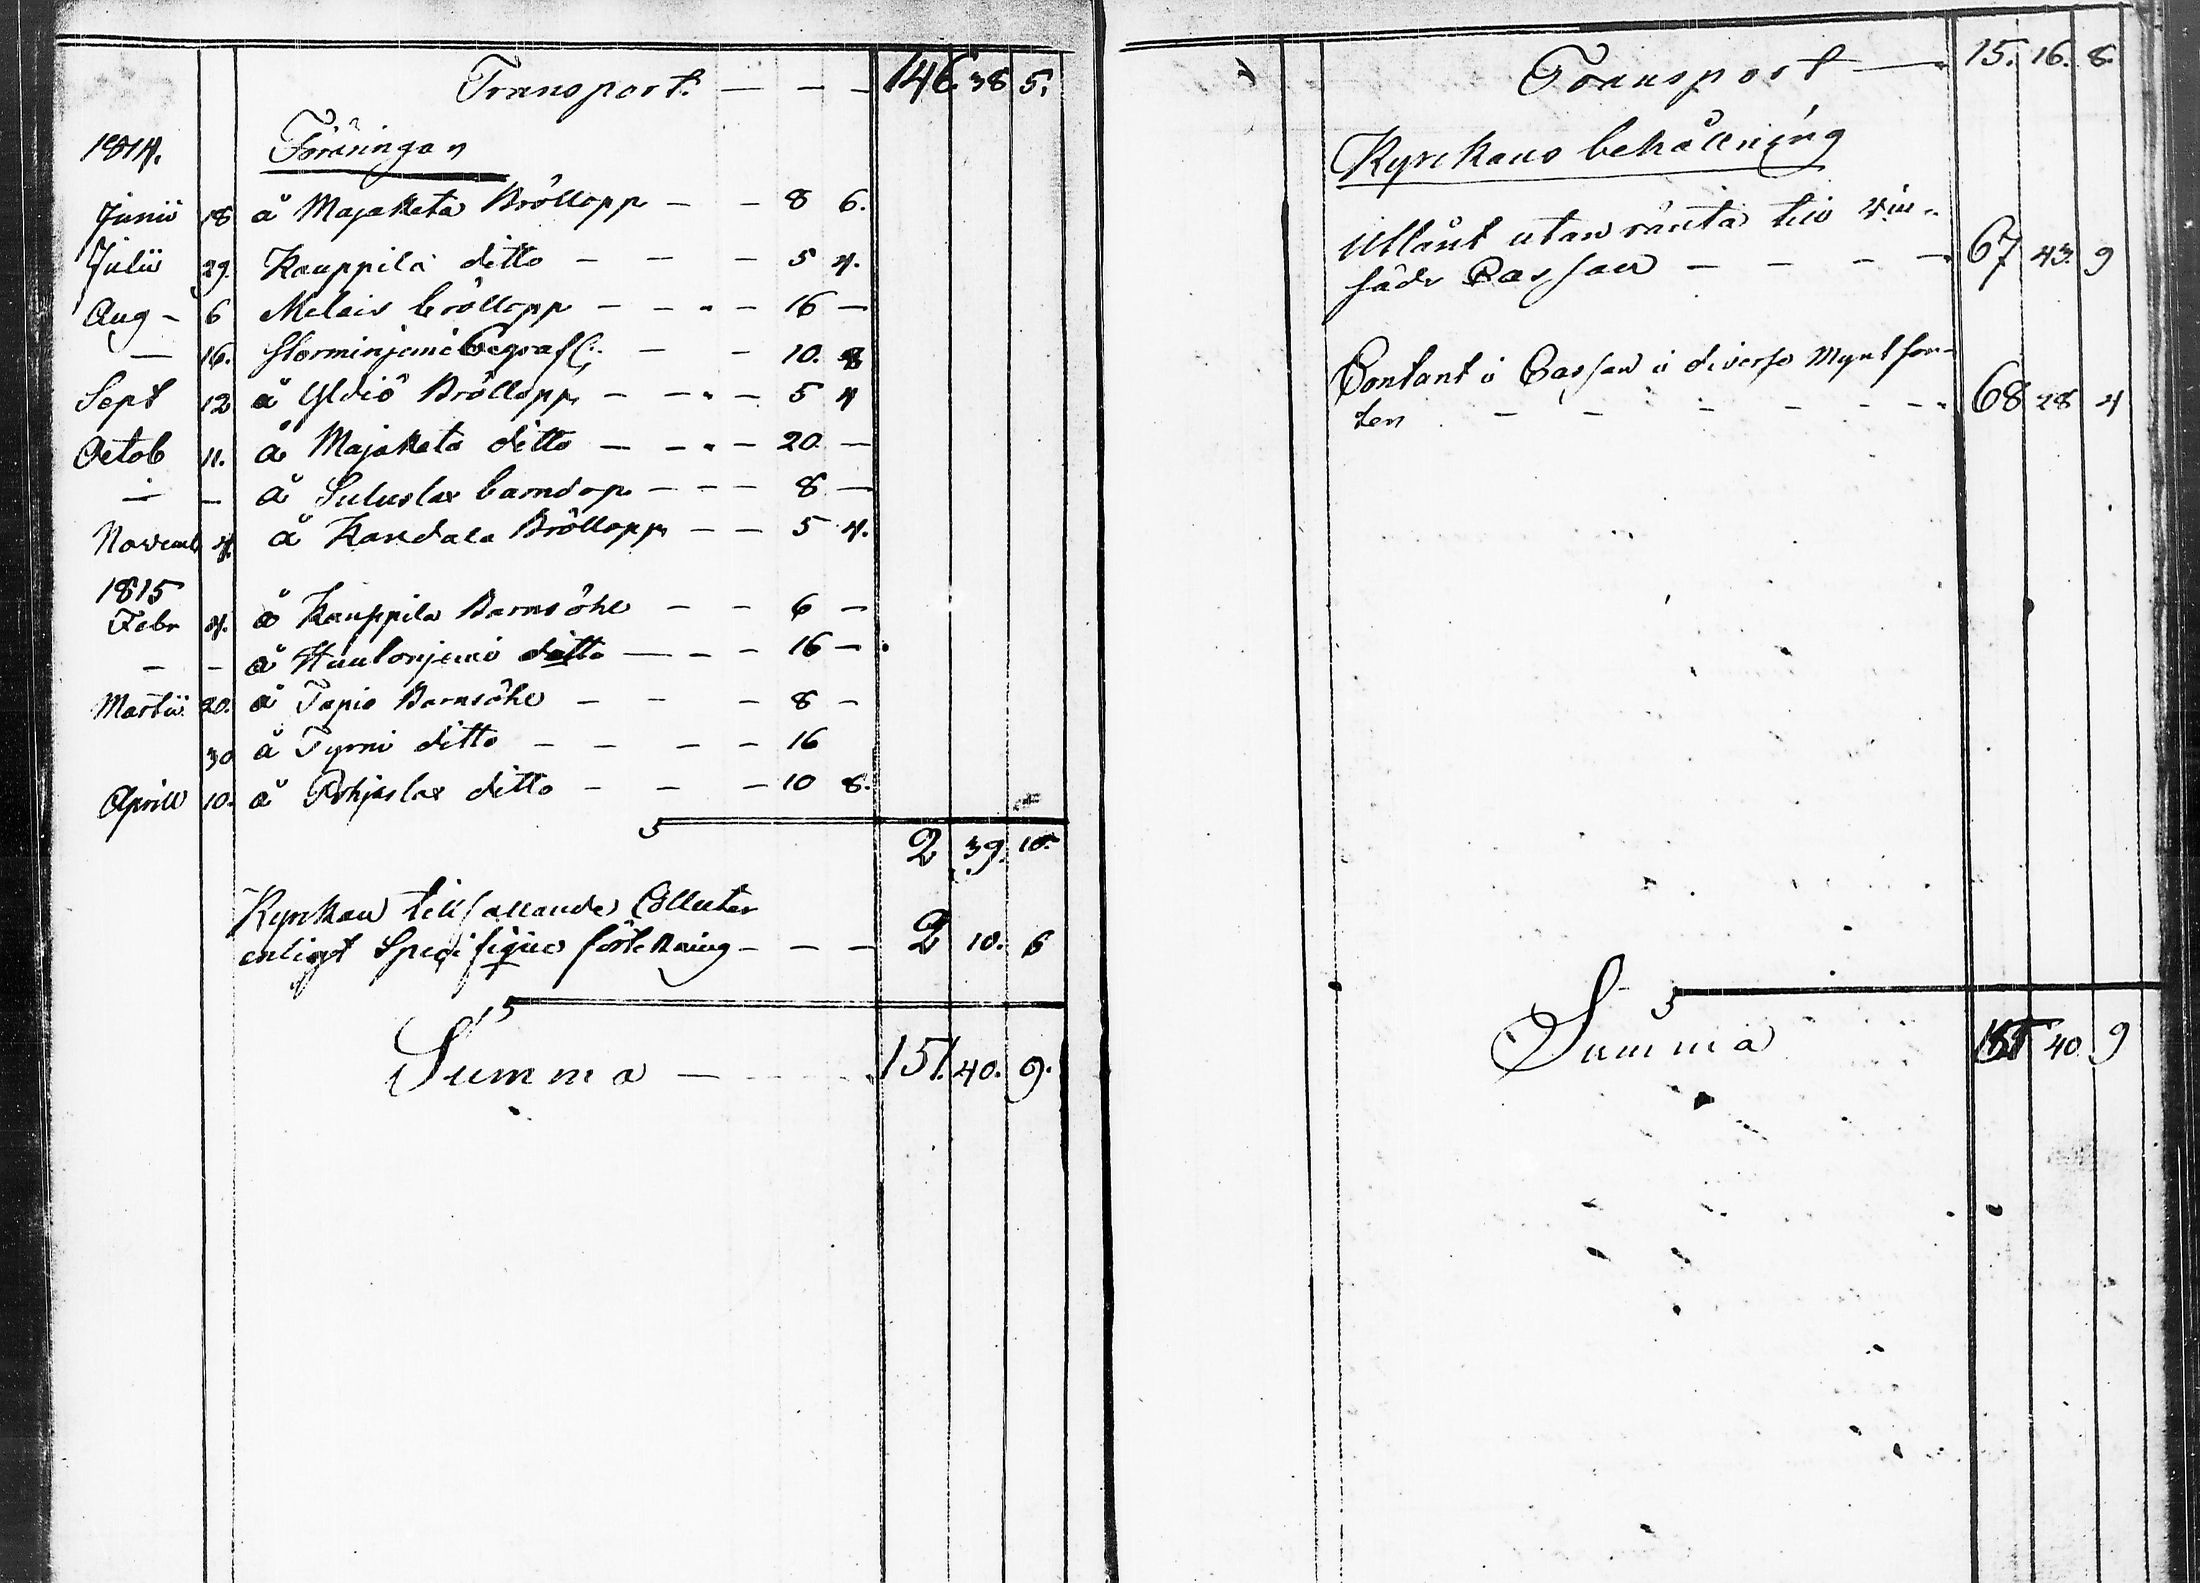 Transport. — — — 146. 38 5.
1814. Föräringar
Junii 18 å Majaketa Bröllopp — — 8 6.
Julii 29. Kauppila ditto — — — 5 4.
Aug — 6 Melais bröllopp — — — 16 —
— 16. Storminjemi begrafl: — — 10. 8
Sept 12 å Yldiö Bröllopp — — — 5 4
Octob 11. å Majaketa ditto — — — 20. —
— — å Suluslax barndop — — — 8 —
Novemb 4. å Kardala Bröllopp — — 5 4.
1815
Febr 4. å Kauppila Barnsöhl — — 6 —
— — å ditto — — — 16 —
Martii 20. å Tapio Barnsöhl — — — 8 —
30 å Tyrni ditto — — — — 16
Aprill 10. å Pohjaslax ditto — — — 10 8.
2 39. 10.
Kyrkan tillfallande Collecter
enligt Specifique förtekning — — — 2 10. 6
Summa — 151. 40. 9.
Transport — 15. 16. 8.
Kyrckans behållning
Utlånt utan ränta till
Cassan — — — — 67 43. 9
Contant i Cassan i diverse Myntsor-
ter — — — — — — 68 28 4
Summa 151 40 9